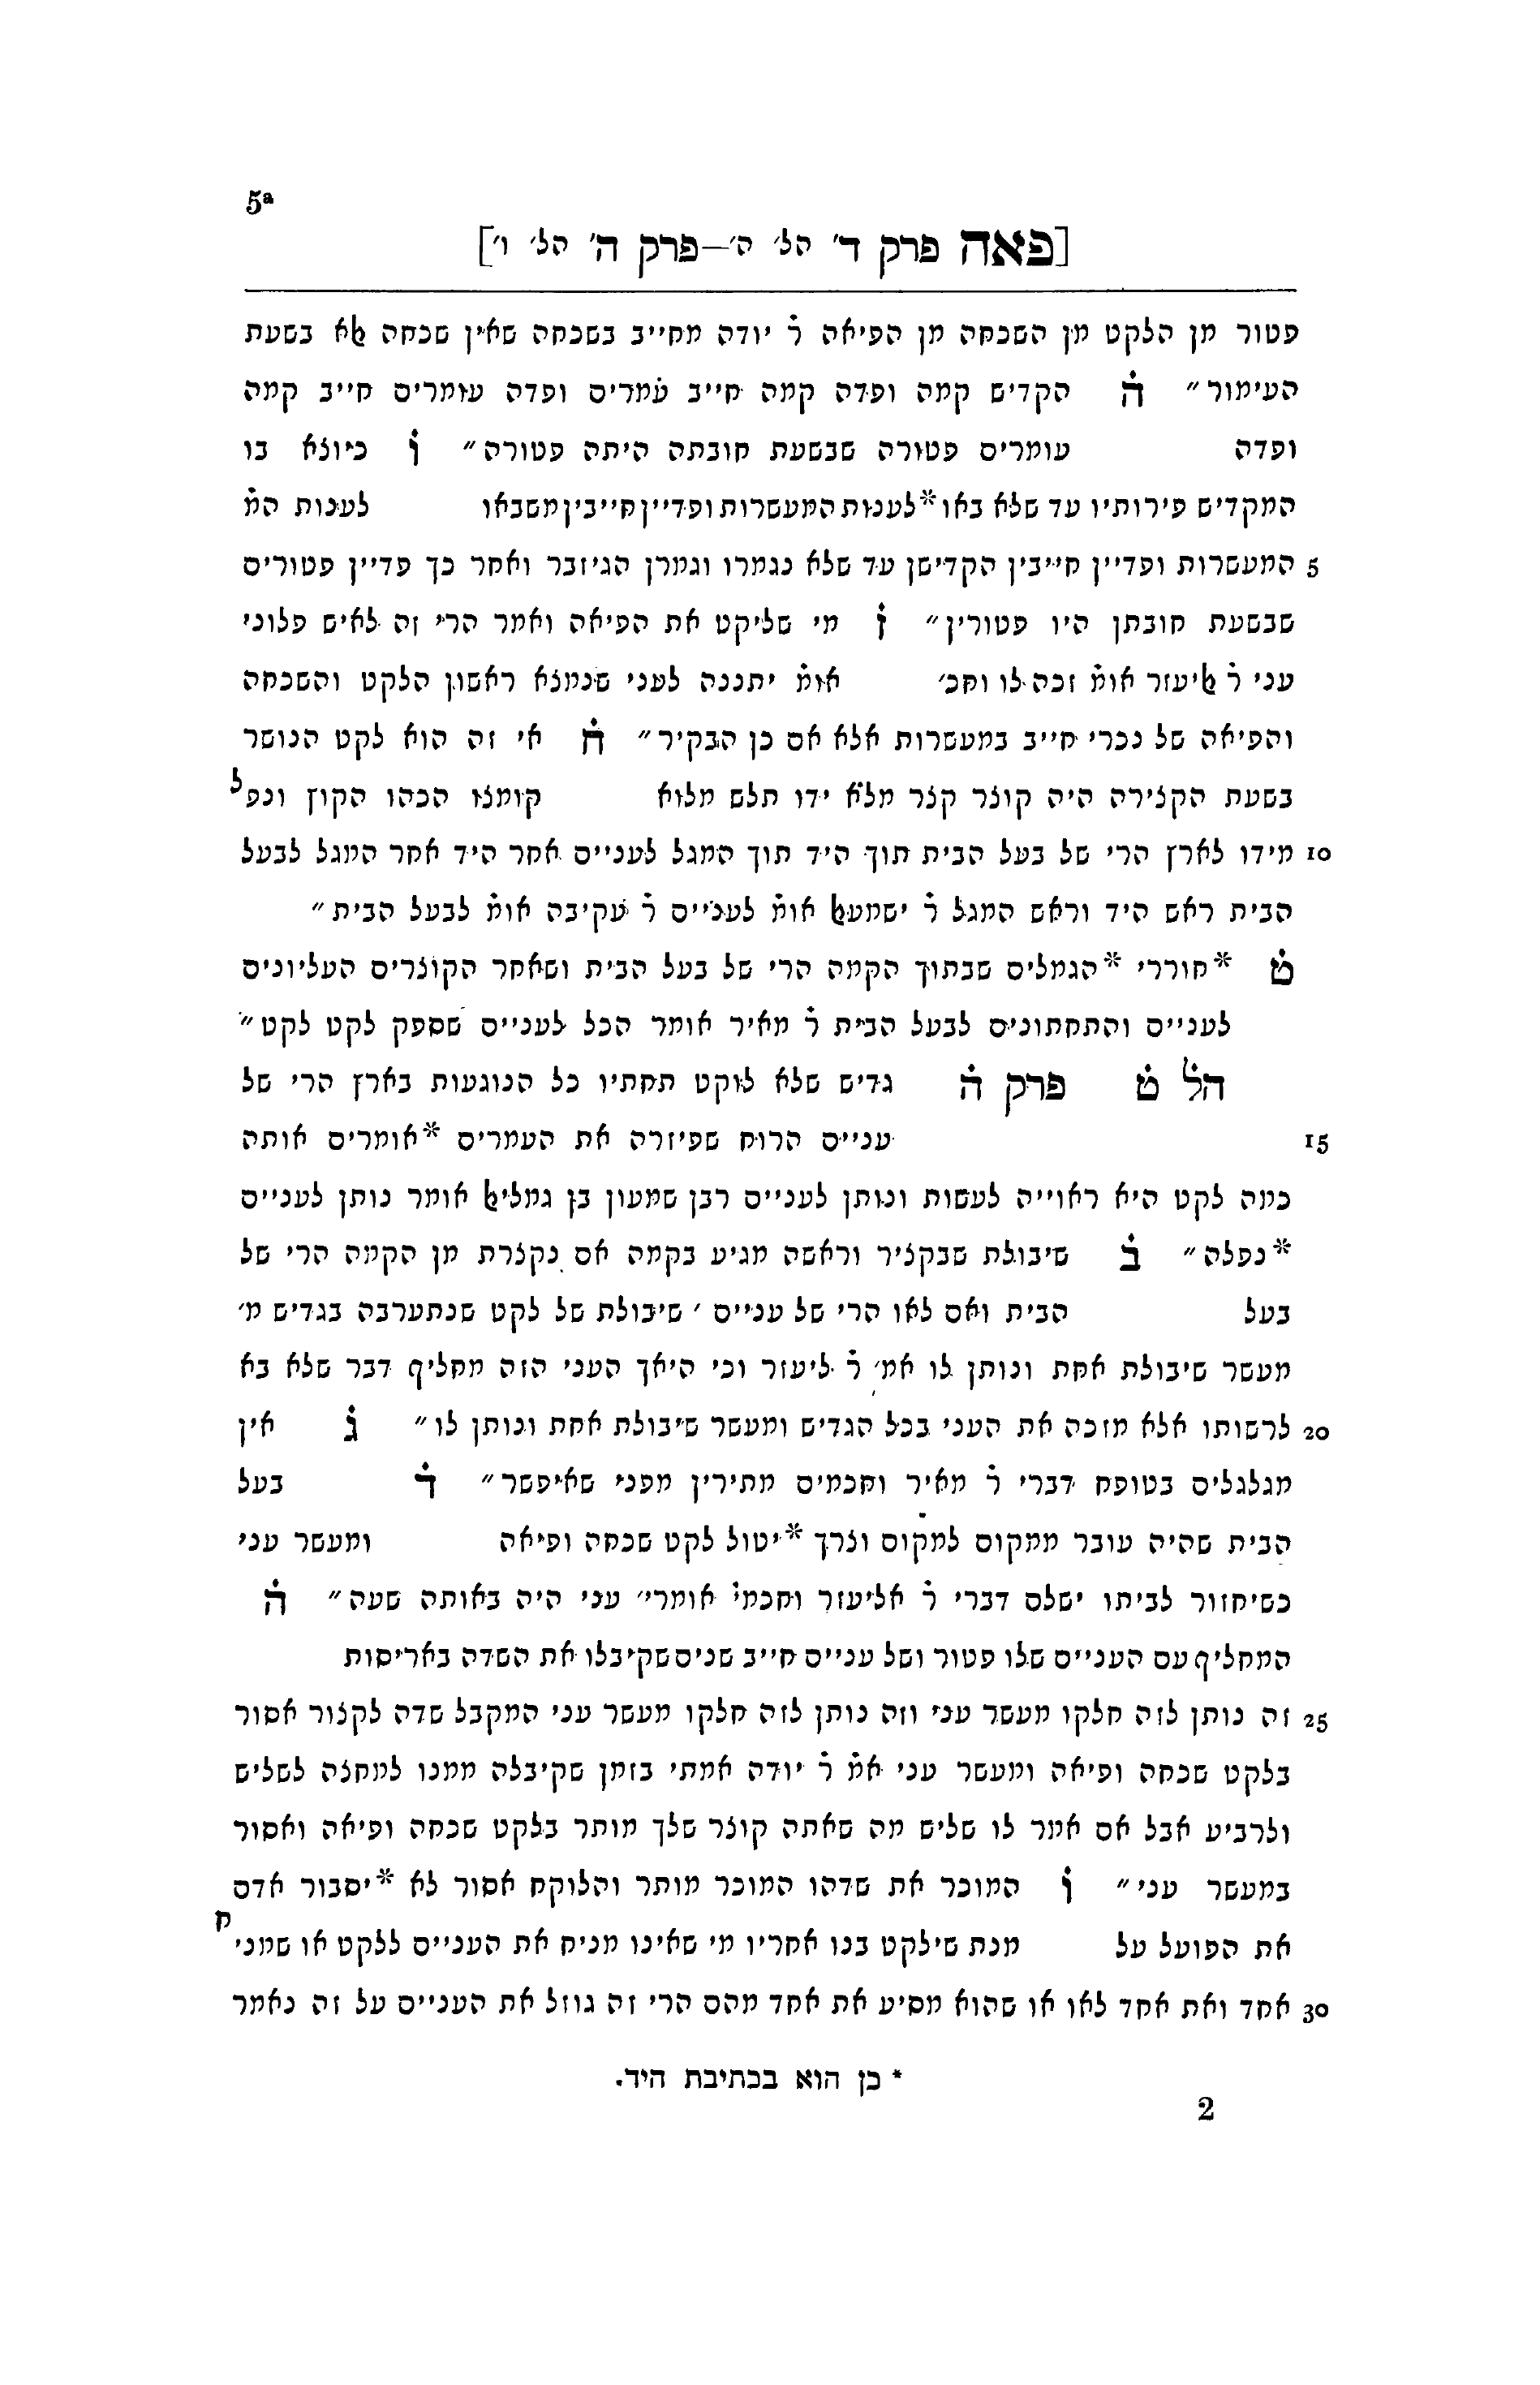 5a
[פאה פרק ד׳ הל׳ ה׳—פרק ה׳ הל׳ ו׳]
פטור מן הלקט מן השכחה מן הפיאה ר̇ יודה מחייב בשכחה שאין שכחה ﭏא בשעת
העימור״ ה̇ הקדיש קמה ופדה קמה חייב עמרים ופדה עומרים חייב קמה
ופדה עומרים פטורה שבשעת חובתה היתה פטורה״ ו̇ כיוצא בו
המקדיש פירותיו עד שלא באו *לענות המעשרות ופדיין חייבין משבאו לענות המ̇
5 המעשרות ופדיין חייבין הקדישן עד שלא נגמרו וגמרן הגיזבר ואחר כך פדיין פטורים
שבשעת חובתן היו פטורין״ ז̇ מי שליקט את הפיאה ואמר הרי זה לאיש פלוני
עני ר̇ ﭏיעזר אומ̇ זכה לו וחכ׳ אומ̇ יתננה לעני שנמצא ראשון הלקט והשכחה
והפיאה של נכרי חייב במעשרות אלא אם כן הבקיר״ ח̇ אי זה הוא לקט הנושר
בשעת הקצירה היה קוצר קצר מלא ידו תלש מלוא קומצו הכהו הקוץ ונפל
10 מידו לארץ הרי של בעל הבית תוך היד תוך המגל לעניים אחר היד אחר המגל לבעל
הבית ראש היד וראש המגל ר̇ ישמעﭏ אומ̇ לעניים ר̇ עקיבה אומ̇ לבעל הבית״
ט̇ *חוררי *הגמלים שבתוך הקמה הרי של בעל הבית ושאחר הקוצרים העליונים
לעניים והתחתונים לבעל הבית ר̇ מאיר אומר הכל לעניים שספק לקט לקט״
הל̇ ט̇ פרק ה̇ גדיש שלא לוקט תחתיו כל הנוגעות בארץ הרי של
15 עניים הרוח שפיזרה את העמרים *אומרים אותה
כמה לקט היא ראוייה לעשות ונותן לעניים רבן שמעון בן גמליﭏ אומר נותן לעניים
*נפלה״ ב̇ שיבולת שבקציר וראשה מגיע בקמה אם נקצרת מן הקמה הרי של
בעל הבית ואם לאו הרי של עניים ׳ שיבולת של לקט שנתערבה בגדיש מ׳
מעשר שיבולת אחת ונותן לו אמ׳ ר̇ ליעזר וכי היאך העני הזה מחליף דבר שלא בא
20 לרשותו אלא מזכה את העני בכל הגדיש ומעשר שיבולת אחת ונותן לו״ ג̇ אין
מגלגלים בטופח דברי ר̇ מאיר וחכמים מתירין מפני שאיפשר״ ד̇ בעל
הבית שהיה עובר ממקום למקום וצרך *יטול לקט שכחה ופיאה ומעשר עני
כשיחזור לביתו ישלם דברי ר̇ אליעזר וחכמי̇ אומרי׳ עני היה באותה שעה״ ה̇
המחליף עם העניים שלו פטור ושל עניים חייב שנים שקיבלו את השדה באריסות
25 זה נותן לזה חלקו מעשר עני וזה נותן לזה חלקו מעשר עני המקבל שדה לקצור אסור
בלקט שכחה ופיאה ומעשר עני אמ̇ ר̇ יודה אמתי בזמן שקיבלה ממנו למחצה לשליש
ולרביע אבל אם אמר לו שליש מה שאתה קוצר שלך מותר בלקט שכחה ופיאה ואסור
במעשר עני״ ו̇ המוכר את שדהו המוכר מותר והלוקח אסור לא *יסבור אדם
את הפועל על מנת שילקט בנו אחריו מי שאינו מניח את העניים ללקט או שמניח
30 אחד ואת אחד לאו או שהוא מסיע את אחד מהם הרי זה גוזל את העניים על זה נאמר
* כן הוא בכתיבת היד.
2